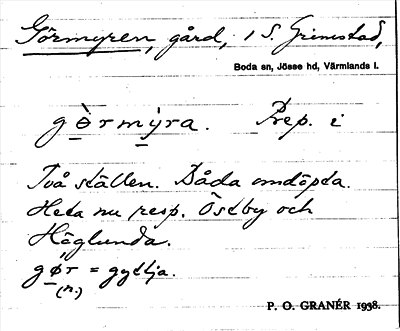 Görmyren, gård, i S. Grimstad,
Boda sn, Jösse hd, Värmlands l.
gə̀rmýra. Prep. i
Två ställen. Båda omdöpta.
Heta nu resp. Östby och
Höglunda.
gør = gyttja.
(n.)
P. O. GRANÉR 1938.